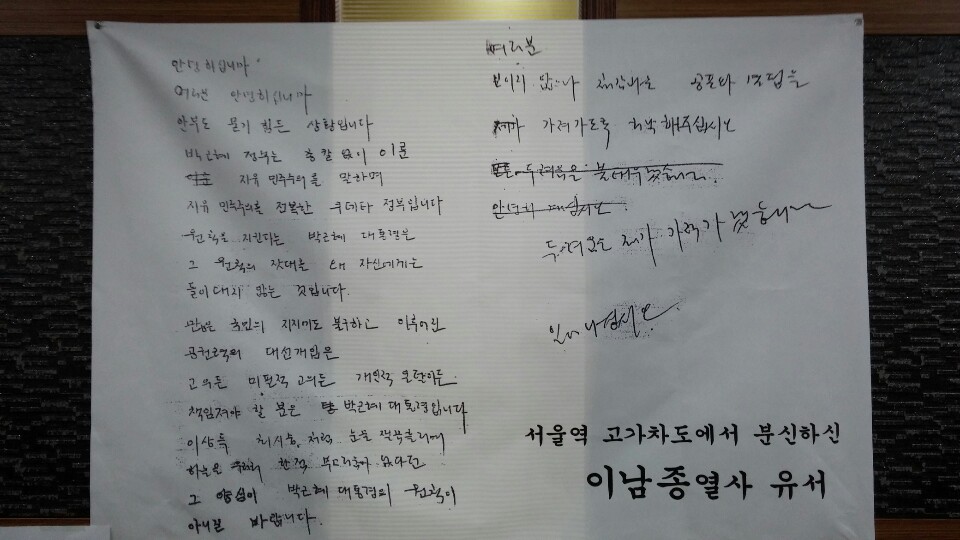 안녕하십니까
여러분 안녕하십니까
안부도 묻기 힘든 상황입니다
박근혜 정부는 총칼 없이 이룬
자유 민주주의를 말하며
자유 민주주의를 전복한 쿠데타 정부입니다
원칙을 지킨다는 박근혜 대통령은
그 원칙의 잣대를 왜 자신에게는
들이대지 않는 것입니다.
많은 국민의 지지에도 불구하고 이루어진
공권력의 대선개입은
고의든 미필적 고의든 개인적 일탈이든
책임져야 할 분은 박근혜 대통령입니다
이상득 최시중 처럼 눈물 찔끔흘리며
하늘을 우러러 한점 부끄러움이 없다던
그 양심이 박근혜 대통령의 원칙이
아니길 바랍니다.
여러분
보이지 않으나 체감하는 공포와 결핍을
제가 가져가도록 허락해주십시오
모든 두려움을 불태우겠습니다.
안녕히 계십시오.
두려움은 제가 가져가겠습니다
일어나십시오.
서울역 고가차도에서 분신하신
이남종열사 유서